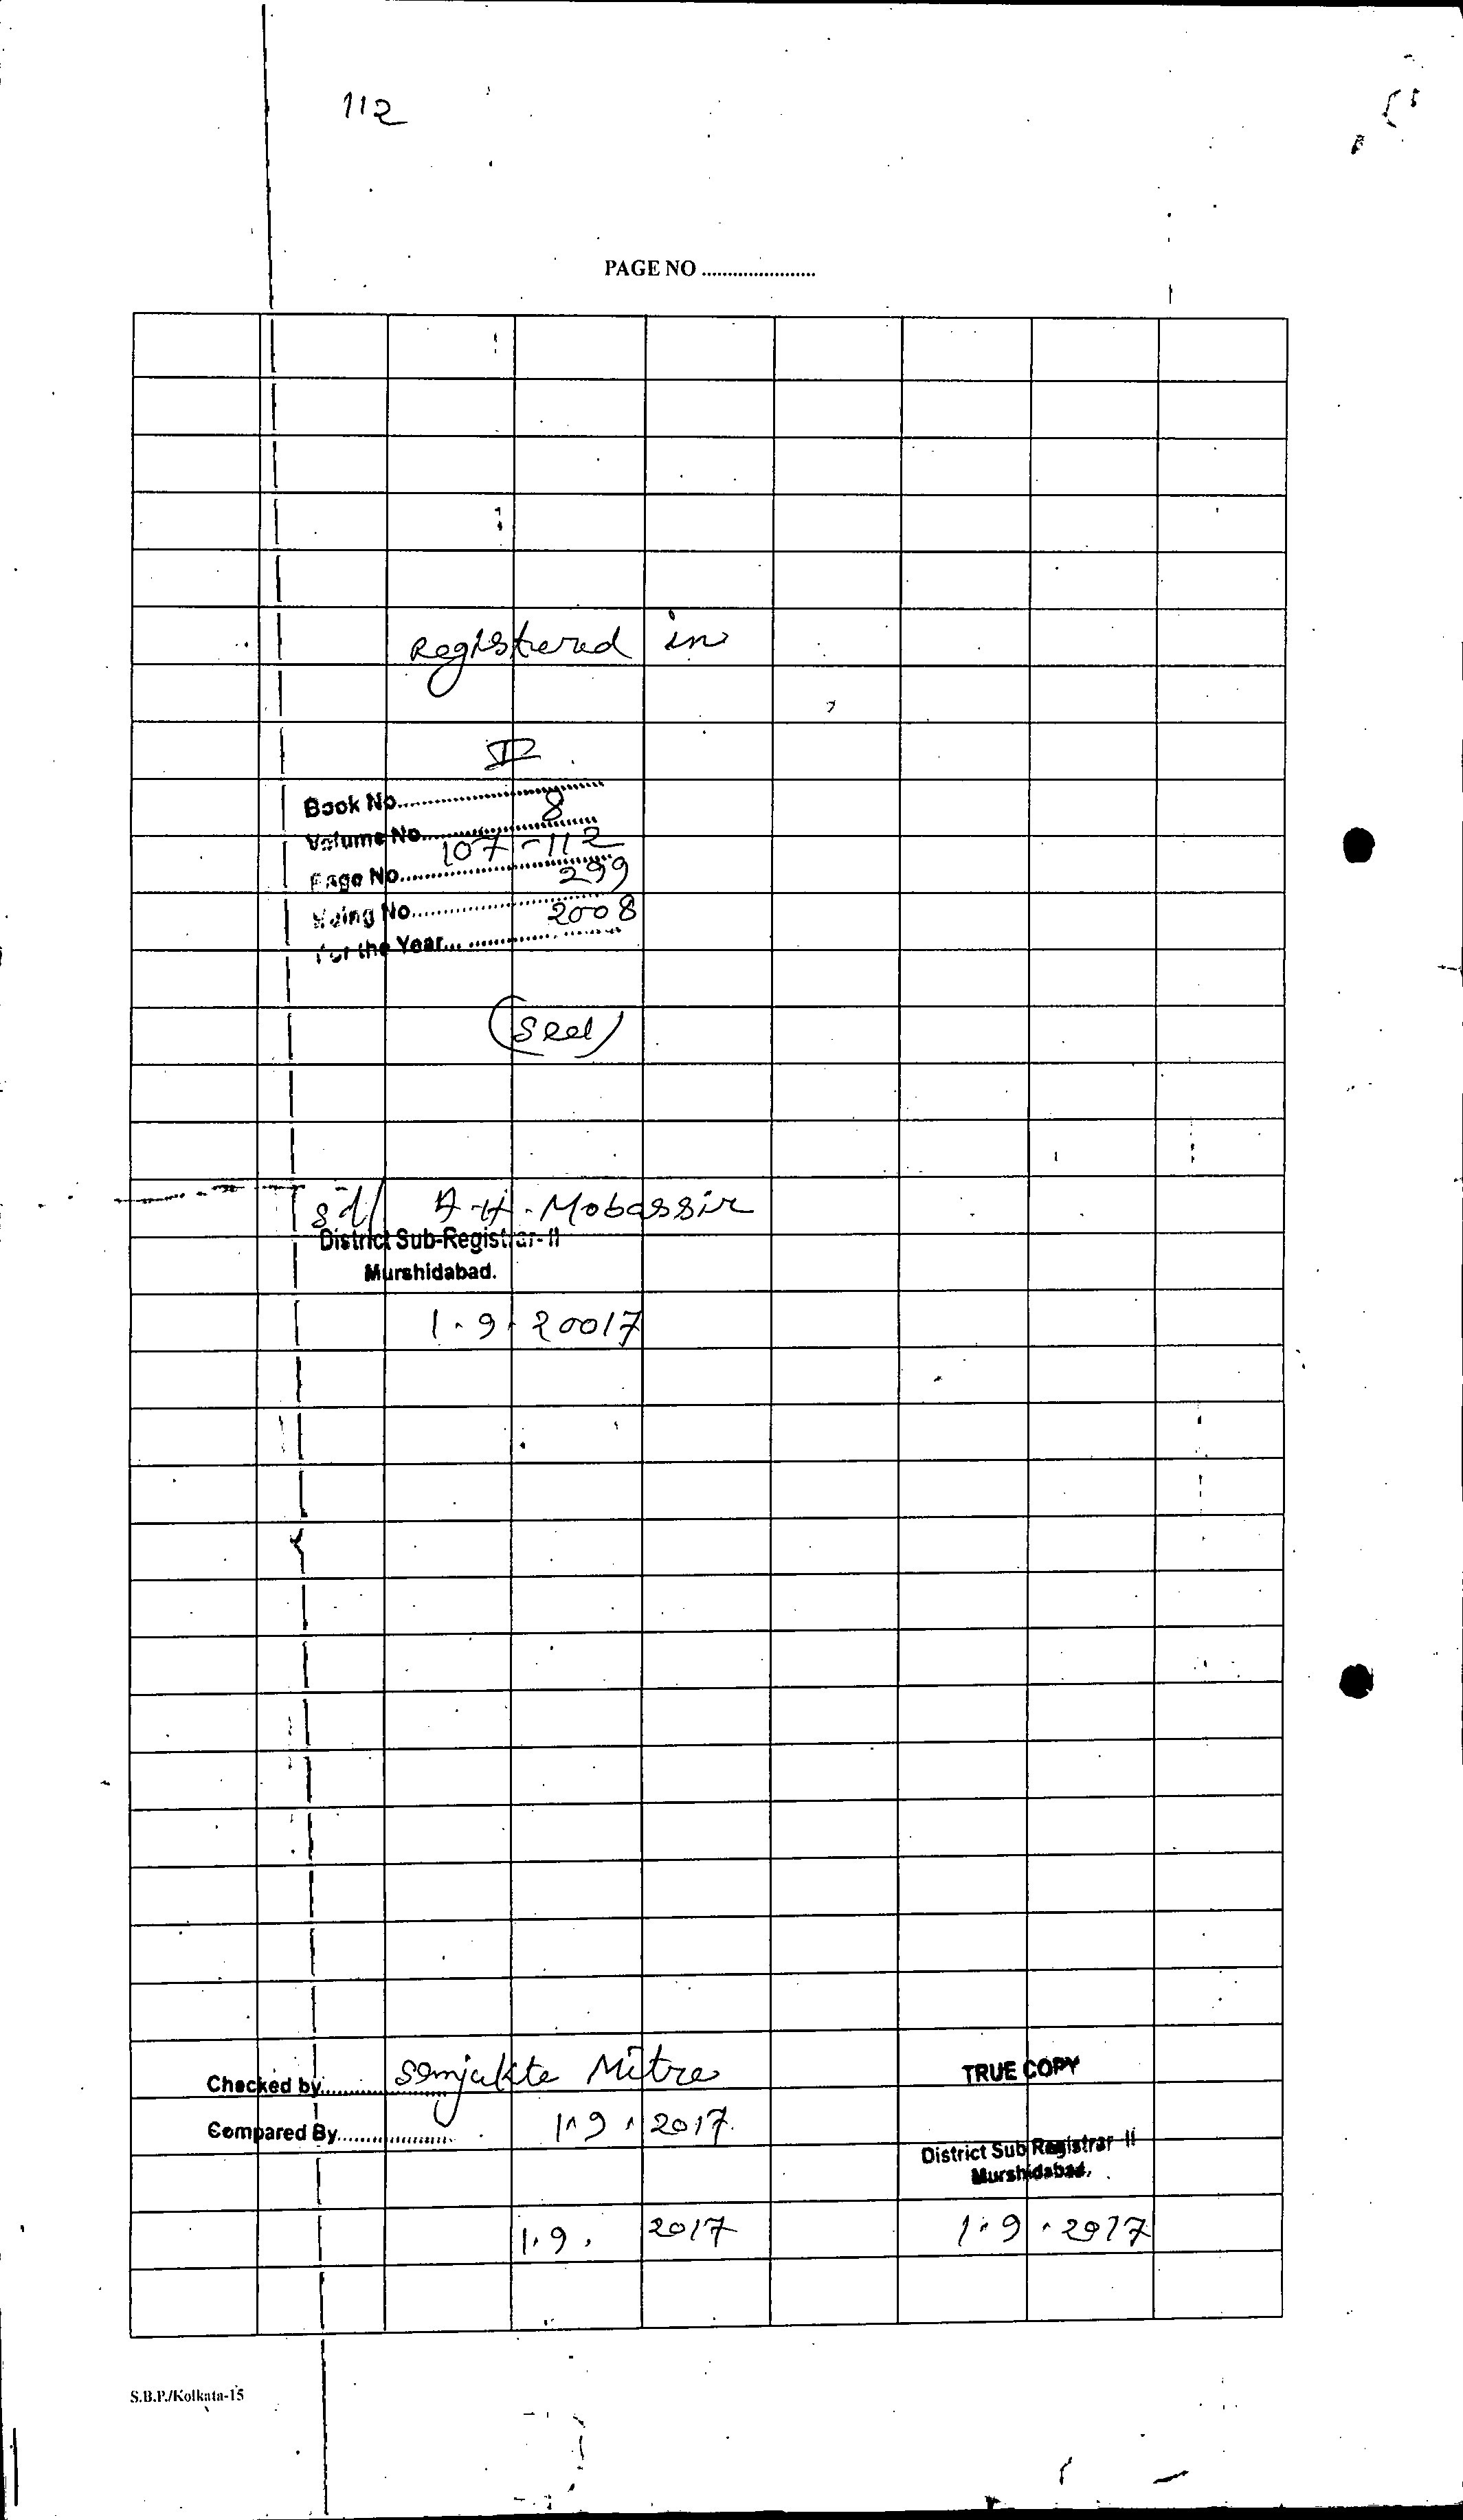 112
PAGE NO ......................
Registered in
IV
Book No..............................
8
Volume No..............................
107-112
Page No..............................
299
Being No..............................
2008
For the Year..............................
(Seal)
sd/ A-H-Mobassir
District Sub-Registrar-II
Murshidabad.
1.9.20017
Checked by.................... Mitra
TRUE COPY
Compared By.................... 1.9.2017
District Sub Registrar-II
Murshidabad.
1.9. 2017
1.9.2017
S.B.P./Kolkata-15